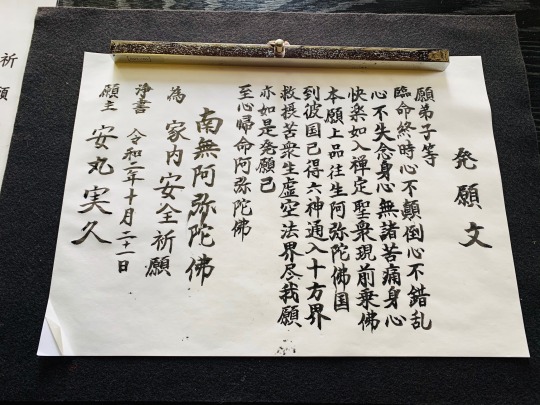 発願文
願弟子等
臨命終時心不顛倒心不錯乱
心不失念身心無諸苦痛身心
快楽如入禅定聖衆現前乗佛
本願上品往生阿弥陀佛国
到彼国已得六神通入十方界
救摂苦衆生虚空法界尽我願
亦如是発願已
至心帰命阿弥陀佛
南無阿弥陀佛
為 家内安全祈願
浄書 令和二年十月二十一日
願主 安丸実久
祈願